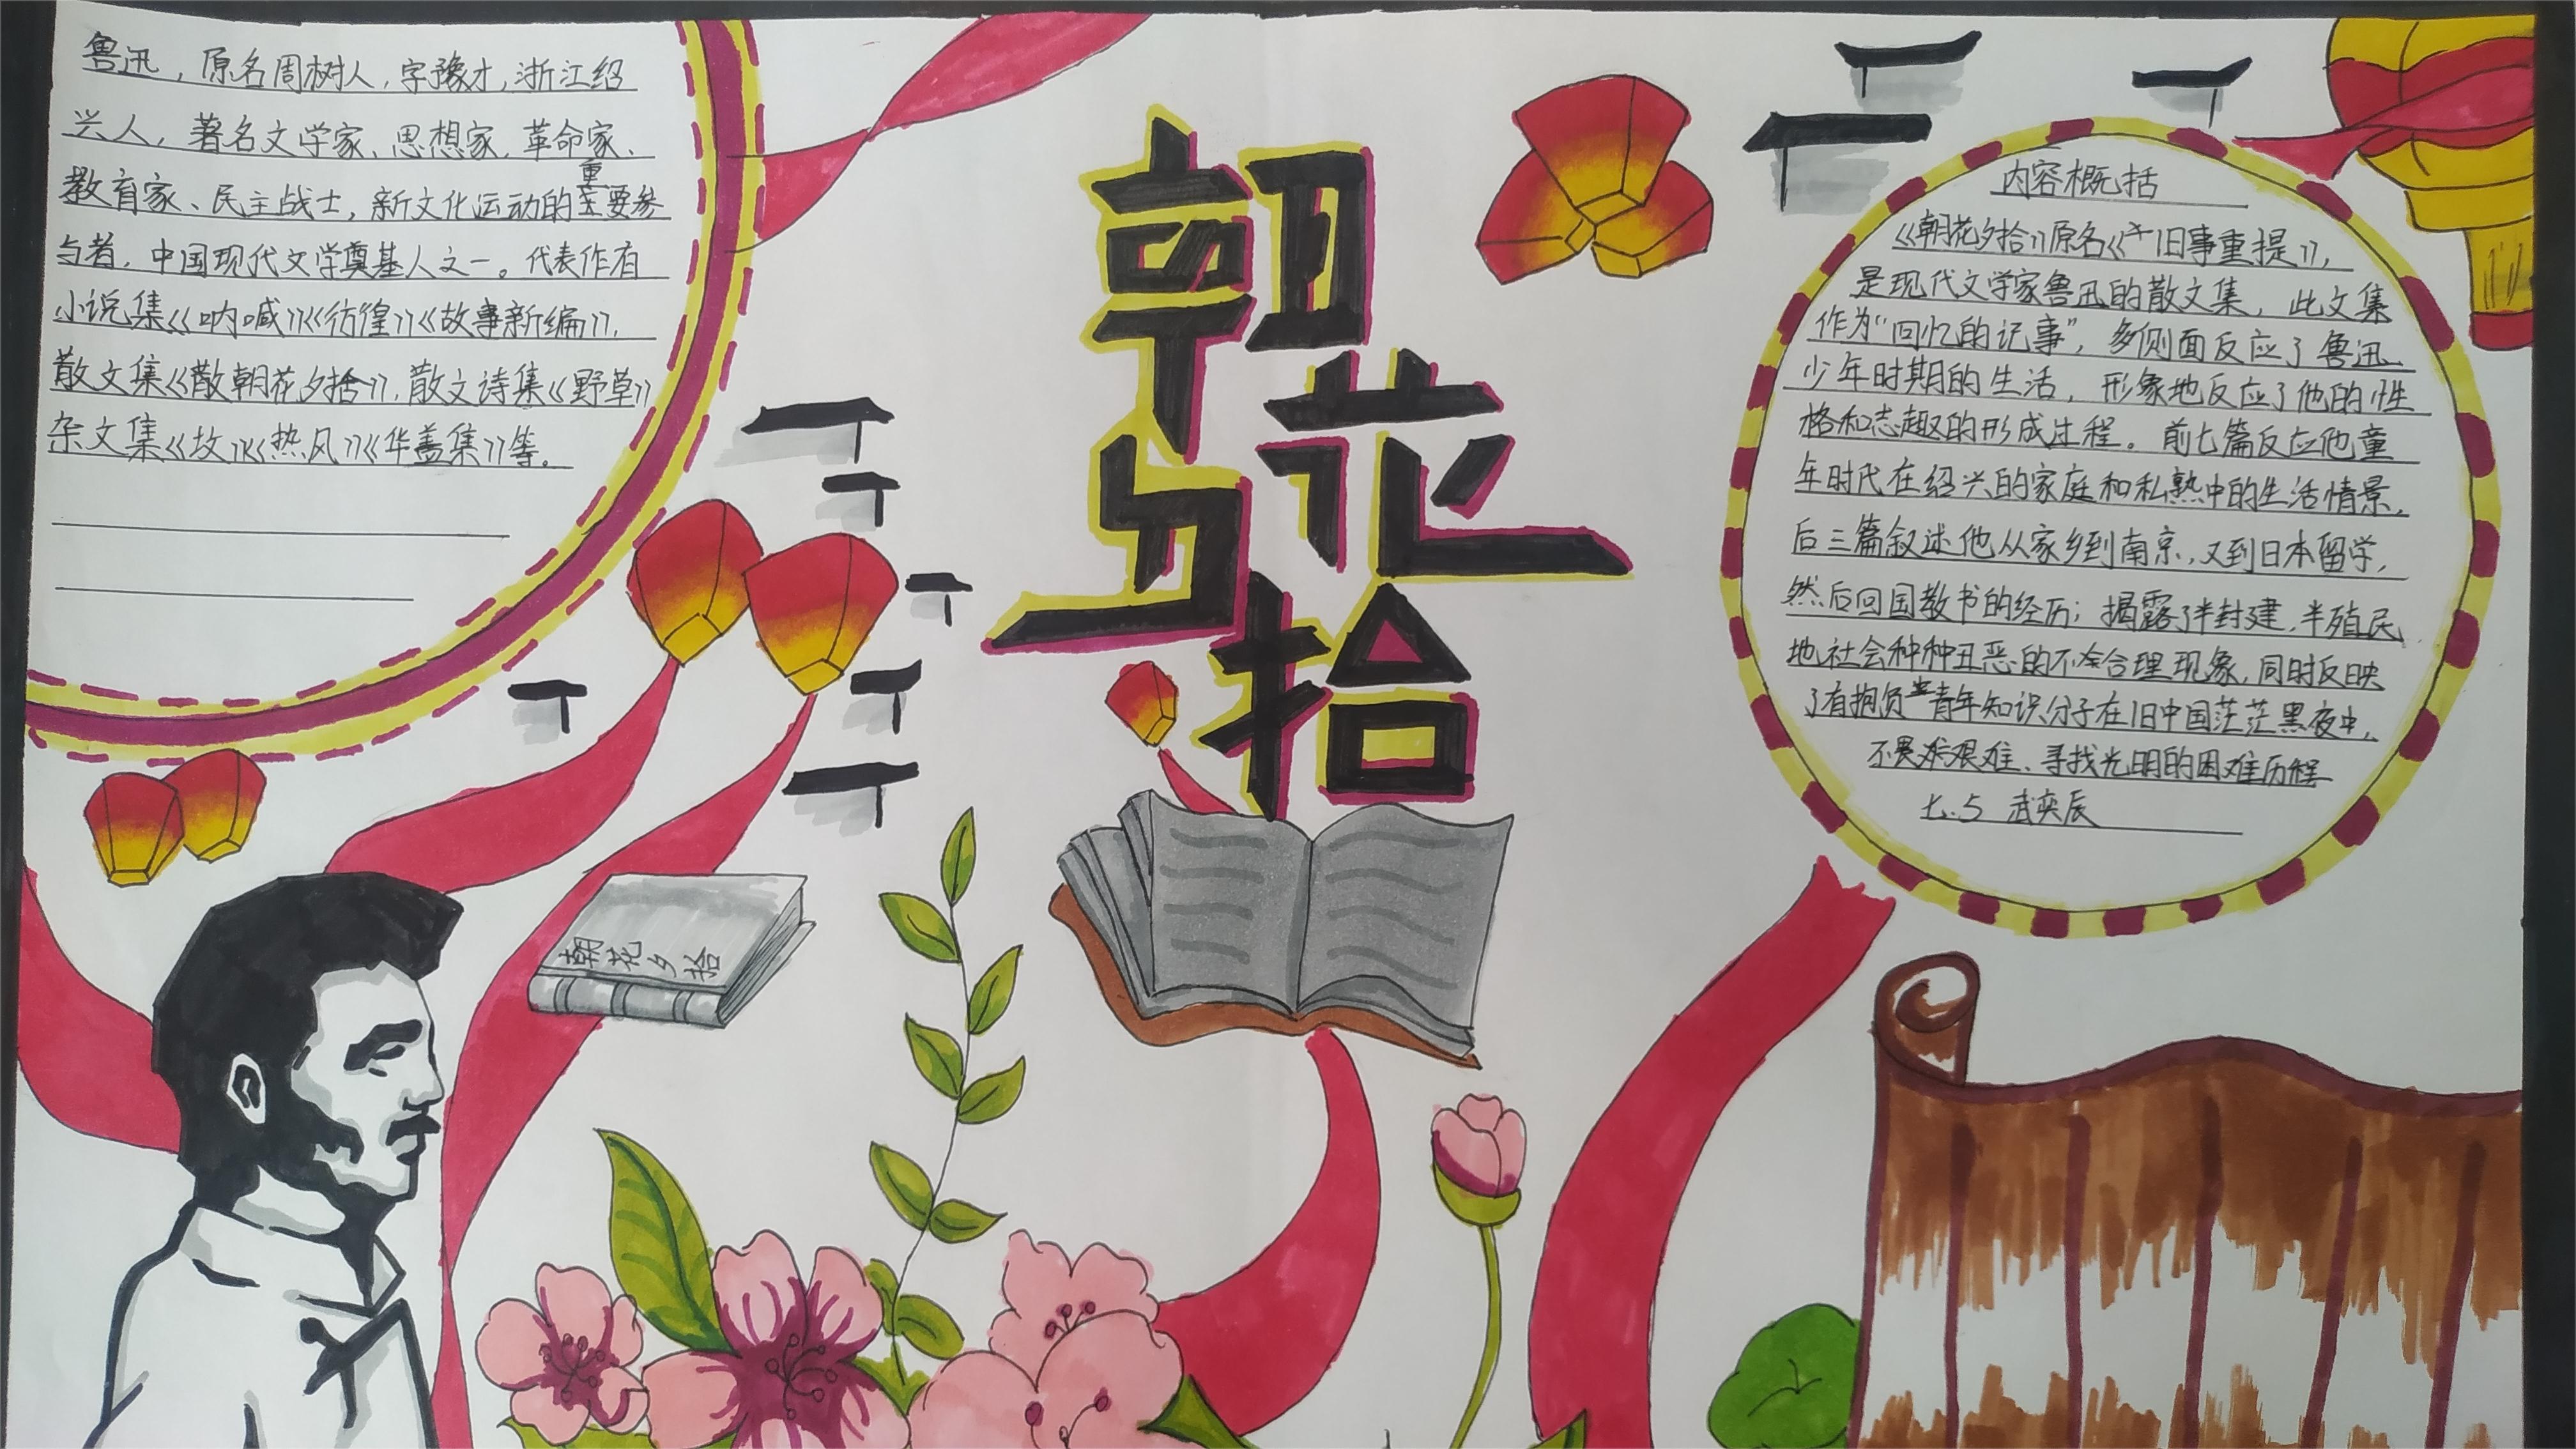 鲁迅，原名周树人，字豫才，浙江绍
兴人，著名文学家、思想家、革命家、
教育家、民主战士，新文化运动的重要参
与者，中国现代文学奠基人之一。代表作有
小说集《呐喊》《彷徨》《故事新编》，
散文集《散朝花夕拾》，散文诗集《野草》
杂文集《坟》《热风》《华盖集》等。
朝花夕拾
朝花夕拾
内容概括
《朝花夕拾》原名《旧事重提》，
是现代文学家鲁迅的散文集，此文集
作为“回忆的记事”，多侧面反应了鲁迅
少年时期的生活，形象地反应了他的性
格和志趣的形成过程。前七篇反应他童
年时代在绍兴的家庭和私熟中的生活情景，
后三篇叙述他从家乡到南京，又到日本留学，
然后回国教书的经历；揭露了半封建，半殖民
地社会种种丑恶的不合理现象，同时反映
了有抱负青年知识分子在旧中国茫茫黑夜中，
不畏艰难、寻找光明的困难历程
七.5 武奕辰